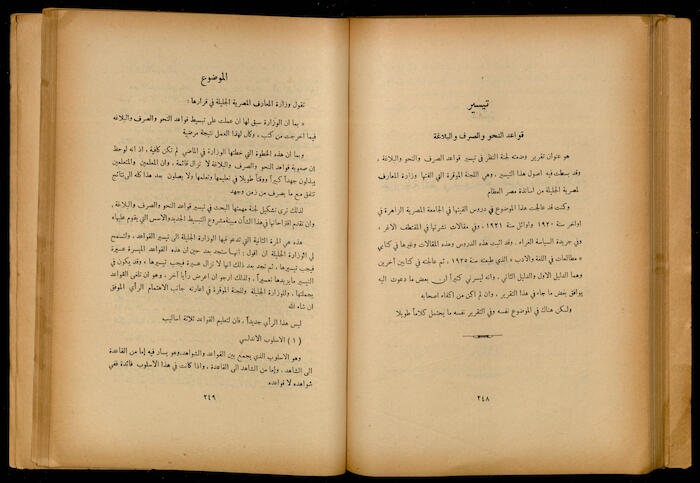 تيسير
قواعد النحو والصرف والبلاغة
هو عنوان تقرير وضعته لجنة النظر في تيسير قواعد الصرف والنحو والبلاغة ،
وقد بسطت فيه اصول هذا التيسير، وهي اللجنة الموقرة التي الفتها وزارة المعارف
المصرية الجليلة من اساتذة مصر العظام
وكنت قد عالجت هذا الموضوع في دروس القيتها في الجامعة المصرية الزاهرة في
اواخر سنة ١٩٢٠ واوائل سنة ١٩٢١ ، وفي مقالات نشرتها في المقتطف الاغر ،
وفي جريدة السياسة الغراء. وقد اثبت هذه الدروس وهذه المقالات وغيرها في كتابي
« مطالعات في اللغة والادب » الذي طبعته سنة ١٩٢٥، ثم عالجته في كتابين آخرين
وهما الدليل الاول والدليل الثاني ، وانه ليسرني كثيراً ان بعض ما دعوت اليه
يوافق بعض ما جاء في هذا التقرير ، وان لم اكن من اكفاء اصحابه
ولكن هناك في الموضوع نفسه وفي التقرير نفسه ما يحتمل كلاماً طويلا
٢٤٨
الموضوع
تقول وزارة المعارف المصرية الجليلة في قرارها :
« بما ان الوزارة سبق لها ان عملت على تبسيط قواعد النحو والصرف والبلاغة
فيما اخرجت من كتب ، وكان لهذا العمل نتيجة مرضية
وبما ان هذه الخطوة التي خطتها الوزارة في الماضي لم تكن كافية ، اذ انه لوحظ
ان صعوبة قواعد النحو والصرف والبلاغة لا تزال قائمة ، وان المعلمين والمتعلمين
يبذلون جهداً كبيراً ووقتاً طويلا في تعليمها وتعلمها ولا يصلون بعد هذا كله الى نتائج
تتفق مع ما يصرف من زمن وجهد
لذلك ترى تشكيل لجنة مهمتها البحث في تيسير قواعد النحو والصرف والبلاغة ،
وان تقدم اقتراحاتها في هذا الشأن مبينة مشروع التبسيط الجديد والاسس التي يقوم عليها»
هذه هي المرة الثانية التي تدعو فيها الوزارة الجليلة الى تيسير القواعد ، ولتسمح
لي الوزارة الجليلة ان اقول : انها ستجد بعد حين ان هذه القواعد الميسرة عسيرة
فيجب تيسيرها ، ثم تجد بعد ذلك انها لا تزال عسيرة فيجب تيسيرها ، وقد يكون في
التيسير ما يزيدها تعسيراً ، ولذلك ارجو ان اعرض رأيا آخر ، وهو ان تلغى القواعد
بجملتها ، والوزارة الجليلة واللجنة الموقرة في اعارته جانب الاهتمام الرأي الموفق
ان شاء الله
ليس هذا الرأي جديداً ، فان لتعليم القواعد ثلاثة اساليب
( ١ ) الاسلوب الاندلسي
وهو الاسلوب الذي يجمع بين القواعد والشواهد، وهو يسار فيه إما من القاعدة
الى الشاهد ، وإما من الشاهد الى القاعدة ، واذا كانت في هذا الاسلوب فائدة ففي
شواهده لا قواعده
٢٤٩